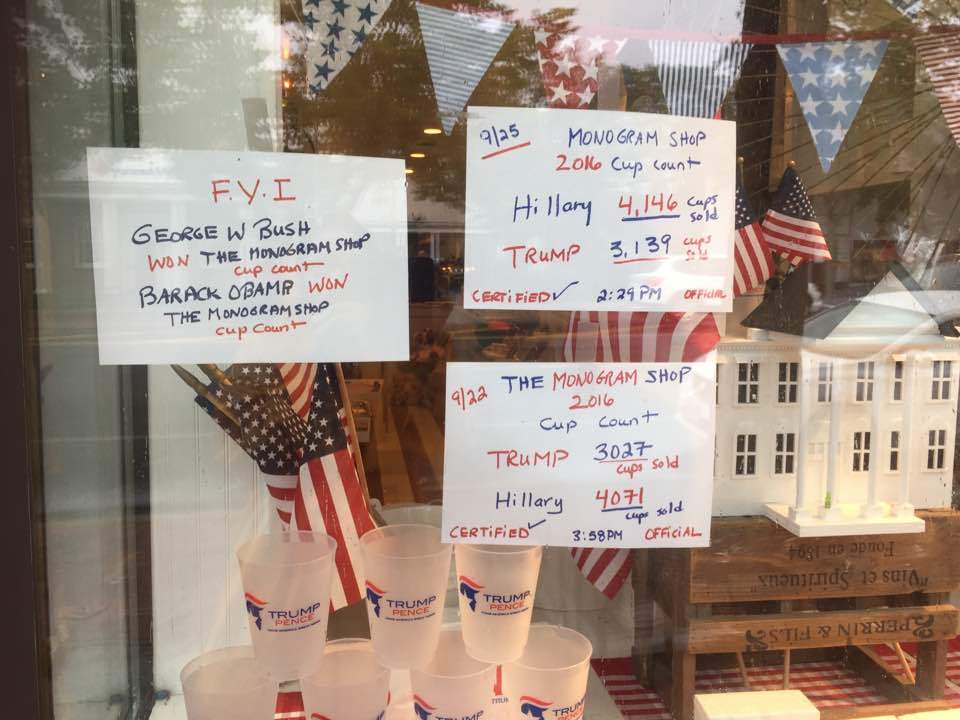 F.Y.I
GEORGE W BUSH
WON THE MONOGRAM SHOP
cup count
BARACK OBAMA WON
THE MONOGRAM SHOP
cup count
9/25 MONOGRAM SHOP
2016 Cup count
Hillary 4,146 cups sold
TRUMP 3,139 cups sold
CERTIFIED ✓ 2:29 PM OFFICIAL
9/22 THE MONOGRAM SHOP
2016
Cup Count
TRUMP 3027
cups sold
Hillary 4071
cups sold
CERTIFIED ✓ 3:58PM OFFICIAL
TRUMP
PENCE
MAKE AMERICA GREAT AGAIN
TRUMP
PENCE
MAKE AMERICA GREAT AGAIN
TRUMP
PENCE
TRUMP
TRUMP
"Vins et Spiritueux"
Fondé en 1894
PERRIN & FILS